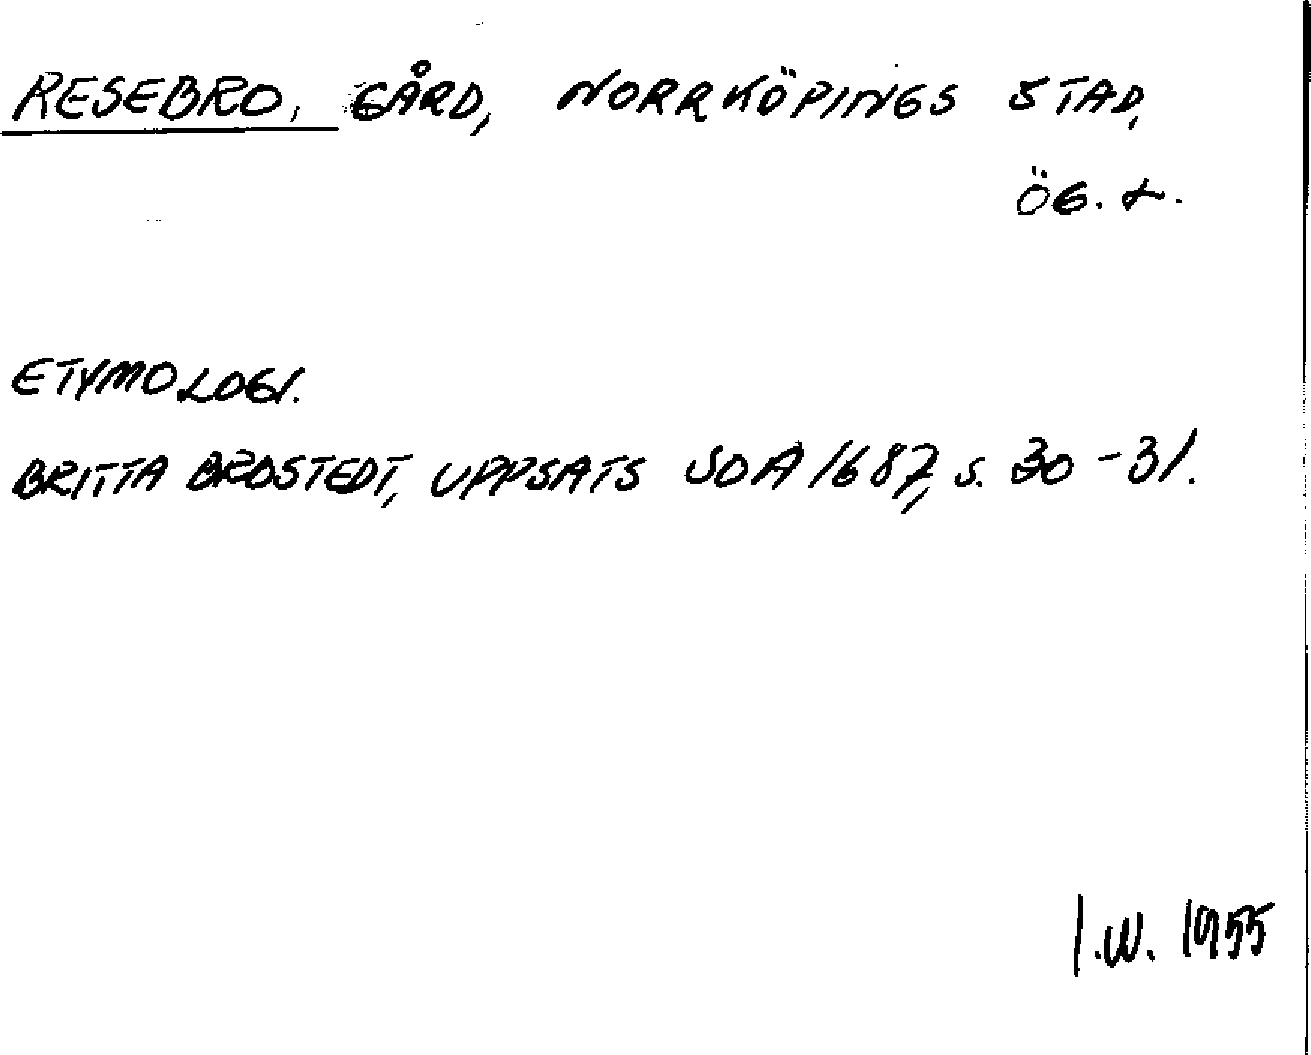 RESEBRO, GÅRD, NORRKÖPINGS STAD,
ÖG. L.
ETYMOLOGI.
BRITTA BROSTEDT, UPPSATS SOA 1687, S. 30-31.
I.W. 1955